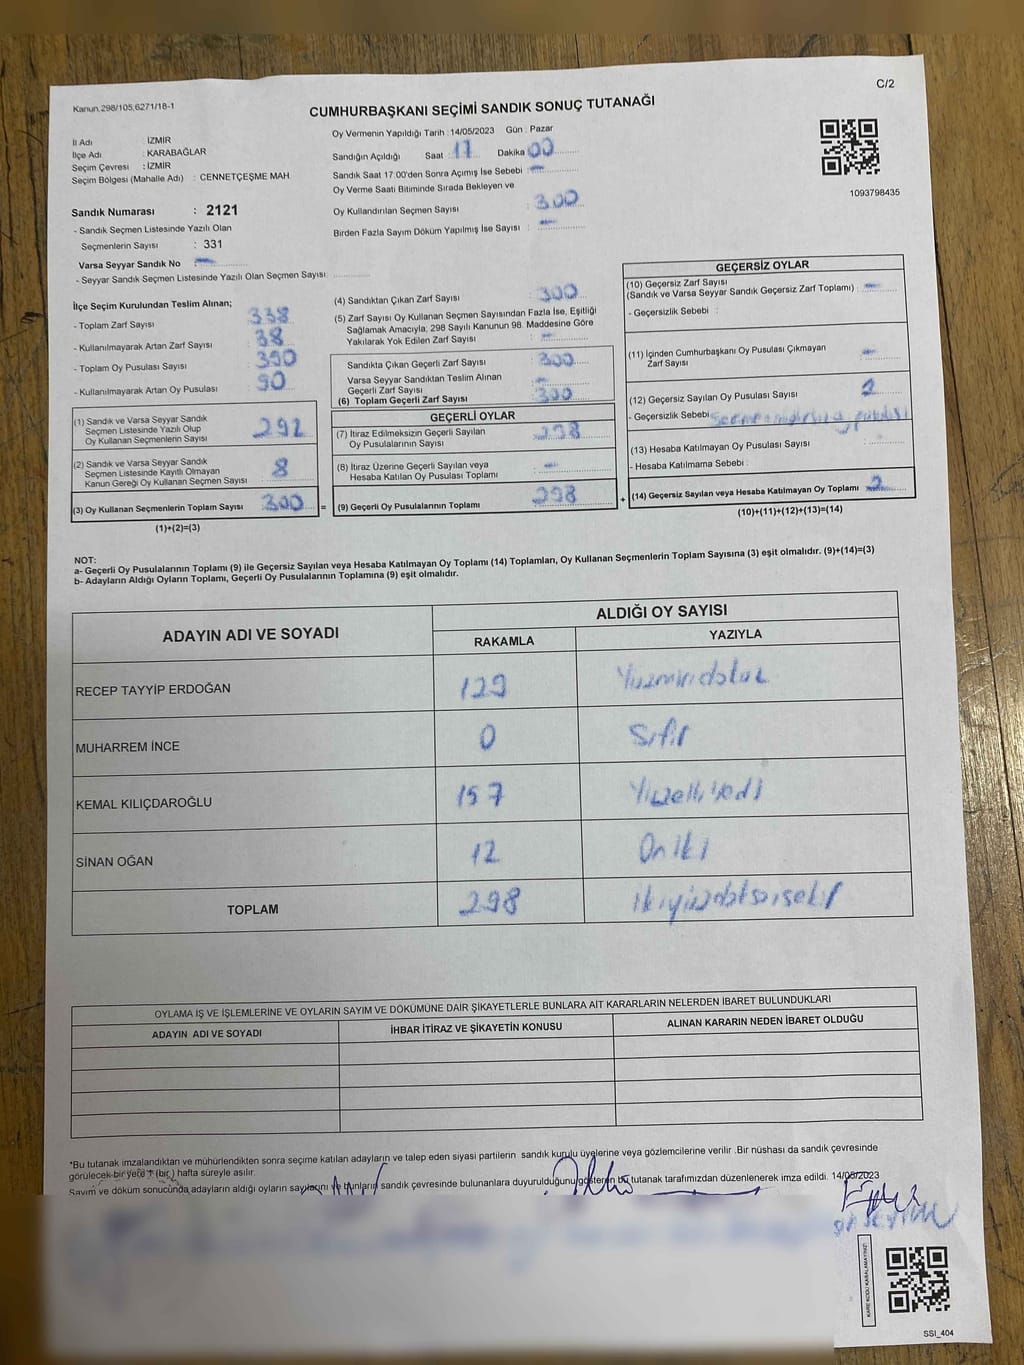 Kanun, 298/105,6271/18-1
C/2
CUMHURBAŞKANI SEÇİMİ SANDIK SONUÇ TUTANAĞI
İl Adı : İZMİR
İlçe Adı : KARABAĞLAR
Seçim Çevresi : İZMİR
Seçim Bölgesi (Mahalle Adı) : CENNETÇEŞME MAH.
Oy Vermenin Yapıldığı Tarih : 14/05/2023 Gün : Pazar
Sandığın Açıldığı Saat : 17 Dakika : 00
Sandık Saat 17:00'den Sonra Açımış İse Sebebi : -
Oy Verme Saati Bitiminde Sırada Bekleyen ve
Oy Kullandırılan Seçmen Sayısı : 300
Birden Fazla Sayım Döküm Yapılmış İse Sayısı : -
1093798435
Sandık Numarası : 2121
- Sandık Seçmen Listesinde Yazılı Olan
Seçmenlerin Sayısı : 331
Varsa Seyyar Sandık No : -
- Seyyar Sandık Seçmen Listesinde Yazılı Olan Seçmen Sayısı:
İlçe Seçim Kurulundan Teslim Alınan;
- Toplam Zarf Sayısı 338
- Kullanılmayarak Artan Zarf Sayısı 38
- Toplam Oy Pusulası Sayısı 390
- Kullanılmayarak Artan Oy Pusulası 90
(1) Sandık ve Varsa Seyyar Sandık
Seçmen Listesinde Yazılı Olup
Oy Kullanan Seçmenlerin Sayısı 292
(2) Sandık ve Varsa Seyyar Sandık
Seçmen Listesinde Kayıtlı Olmayan
Kanun Gereği Oy Kullanan Seçmen Sayısı 8
(3) Oy Kullanan Seçmenlerin Toplam Sayısı 300 =
(1)+(2)=(3)
(4) Sandıktan Çıkan Zarf Sayısı : 300
(5) Zarf Sayısı Oy Kullanan Seçmen Sayısından Fazla İse, Eşitliği
Sağlamak Amacıyla; 298 Sayılı Kanunun 98. Maddesine Göre
Yakılarak Yok Edilen Zarf Sayısı : -
Sandıkta Çıkan Geçerli Zarf Sayısı : 300
Varsa Seyyar Sandıktan Teslim Alınan
Geçerli Zarf Sayısı : -
(6) Toplam Geçerli Zarf Sayısı : 300
GEÇERLİ OYLAR
(7) İtiraz Edilmeksizin Geçerli Sayılan
Oy Pusulalarının Sayısı : 298
(8) İtiraz Üzerine Geçerli Sayılan veya
Hesaba Katılan Oy Pusulası Toplamı : -
(9) Geçerli Oy Pusulalarının Toplamı 298 +
GEÇERSİZ OYLAR
(10) Geçersiz Zarf Sayısı
(Sandık ve Varsa Seyyar Sandık Geçersiz Zarf Toplamı) : -
- Geçersizlik Sebebi :
(11) İçinden Cumhurbaşkanı Oy Pusulası Çıkmayan
Zarf Sayısı : -
(12) Geçersiz Sayılan Oy Pusulası Sayısı : 2
- Geçersizlik Sebebi
(13) Hesaba Katılmayan Oy Pusulası Sayısı :
- Hesaba Katılmama Sebebi :
(14) Geçersiz Sayılan veya Hesaba Katılmayan Oy Toplamı : 2
(10)+(11)+(12)+(13)=(14)
NOT:
a- Geçerli Oy Pusulalarının Toplamı (9) ile Geçersiz Sayılan veya Hesaba Katılmayan Oy Toplamı (14) Toplamları, Oy Kullanan Seçmenlerin Toplam Sayısına (3) eşit olmalıdır. (9)+(14)=(3)
b- Adayların Aldığı Oyların Toplamı, Geçerli Oy Pusulalarının Toplamına (9) eşit olmalıdır.
ADAYIN ADI VE SOYADI
ALDIĞI OY SAYISI
RAKAMLA YAZIYLA
RECEP TAYYİP ERDOĞAN 129 Yüzyirmidokuz
MUHARREM İNCE 0 Sıfır
KEMAL KILIÇDAROĞLU 157 Yüzelliyedi
SİNAN OĞAN 12 On iki
TOPLAM 298 ikiyüzdoksansekiz
OYLAMA İŞ VE İŞLEMLERİNE VE OYLARIN SAYIM VE DÖKÜMÜNE DAİR ŞİKAYETLERLE BUNLARA AİT KARARLARIN NELERDEN İBARET BULUNDUKLARI
ADAYIN ADI VE SOYADI İHBAR İTİRAZ VE ŞİKAYETİN KONUSU ALINAN KARARIN NEDEN İBARET OLDUĞU
*Bu tutanak imzalandıktan ve mühürlendikten sonra seçime katılan adayların ve talep eden siyasi partilerin sandık kurulu üyelerine veya gözlemcilerine verilir .Bir nüshası da sandık çevresinde
görülecek bir yere 1 (bir ) hafta süreyle asılır.
Sayım ve döküm sonucunda adayların aldığı oyların sayılarının bunların sandık çevresinde bulunanlara duyurulduğunu gösteren bu tutanak tarafımızdan düzenlenerek imza edildi. 14/05/2023
KARE KODU KARALAMAYINIZ!
SSI_404